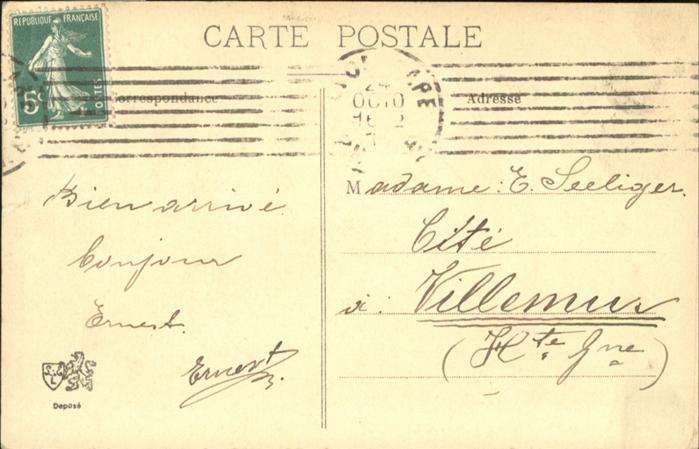 RÉPUBLIQUE FRANÇAISE
5c
POSTES
CARTE POSTALE
Correspondance
Adresse
24
OCT 10
Bien arrivé
bonjour
Ernest.
Ernest
Déposé
Madame: E. Seeliger.
Cité
à: Villemur
(Hte Gne)